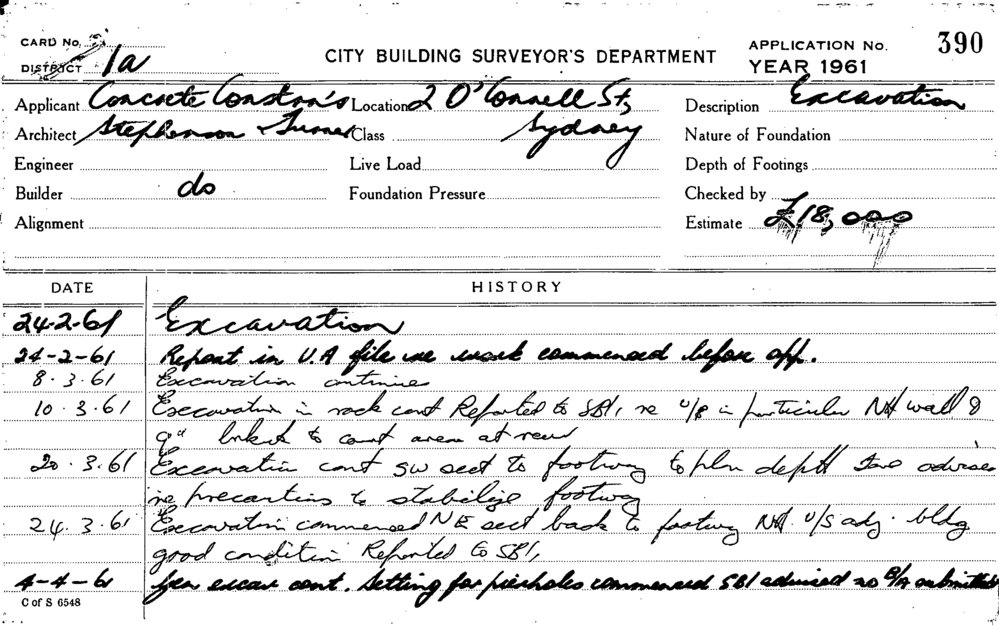 CARD No.
DISTRICT 1a
CITY BUILDING SURVEYOR'S DEPARTMENT
APPLICATION No. 390
YEAR 1961
Applicant Concrete Constrn's Location 2 O'Connell St, Description Excavation
Architect Stephenson & Turner Class Sydney Nature of Foundation
Engineer Live Load Depth of Footings
Builder do Foundation Pressure Checked by
Alignment Estimate £18,000
DATE HISTORY
24-2-61 Excavation
24-2-61 Report in U.A file re work commenced before app.
8.3.61 Excavation continues
10.3.61 Excavation in rock cont Reported to SBI, re U/P in particular Nth wall &
9" to court area at rear
20.3.61 Excavation cont SW sect to footway to plan depth advise
re precautions to stabilize footway
24.3.61 Excavation commenced NE sect back to footway Nth U/S adj. bldg
good condition Reported to SBI,
4-4-61 Gen excav cont. Setting for pierholes commenced SBI advised no B/A submitted
C of S 6548